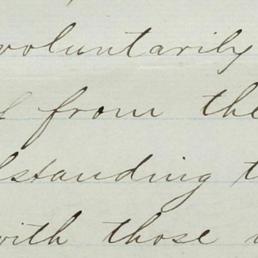 voluntarily
from the
standing t
with those